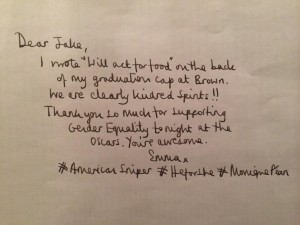 Dear Jake,
I wrote "Will act for food" on the back
of my graduation cap at Brown.
We are clearly kindred spirits!!
Thank you so much for supporting
Gender Equality tonight at the
Oscars. You're awesome.
Emma x
#American Sniper #Heforshe #Monique Péan